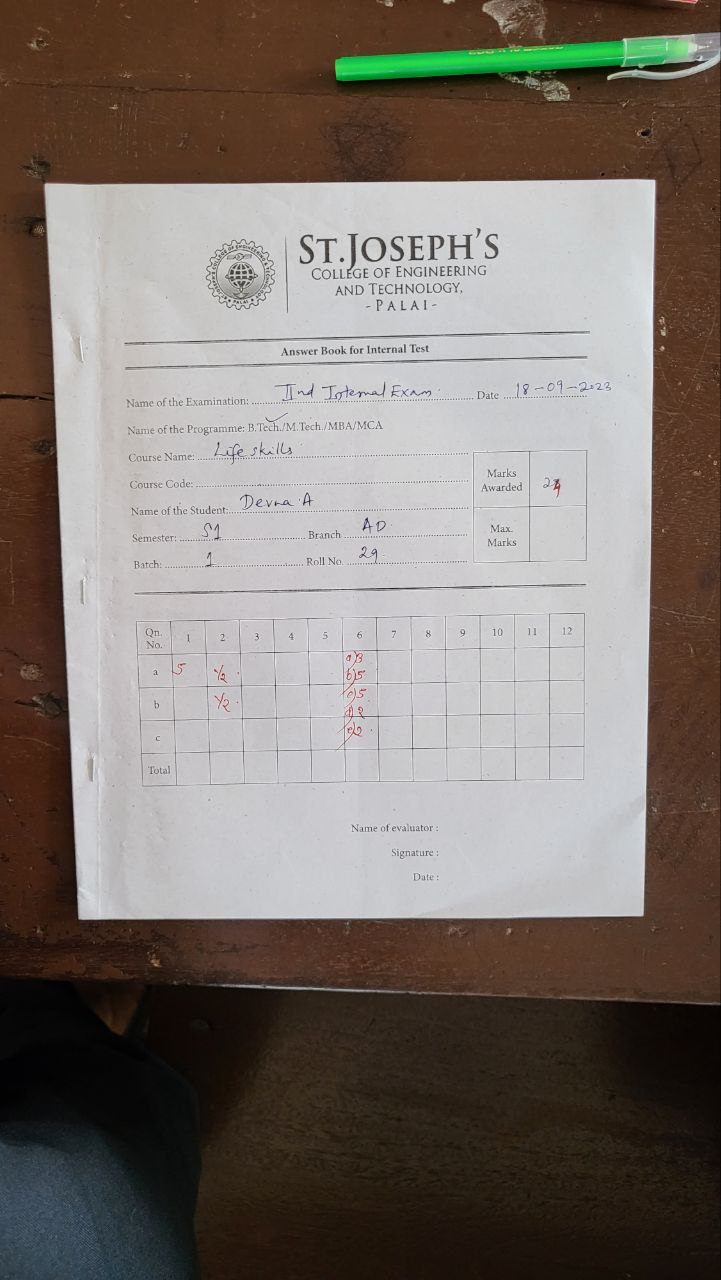 ST.JOSEPH'S
COLLEGE OF ENGINEERING
AND TECHNOLOGY,
- PALAI -
Answer Book for Internal Test
Name of the Examination: IInd Internal Exam. Date 18-09-2023
Name of the Programme: B.Tech./M.Tech./MBA/MCA
Course Name: Life skills
Course Code:
Name of the Student: Devna A
Semester: S1 Branch AD
Batch: 1 Roll No. 29
Marks Awarded
Max. Marks
Qn. No. 1 2 3 4 5 6 7 8 9 10 11 12
a 5 1/2 a) 3
b) 5
b 1/2 c) 5
d) 2
c e) 2
Total
Name of evaluator :
Signature :
Date :